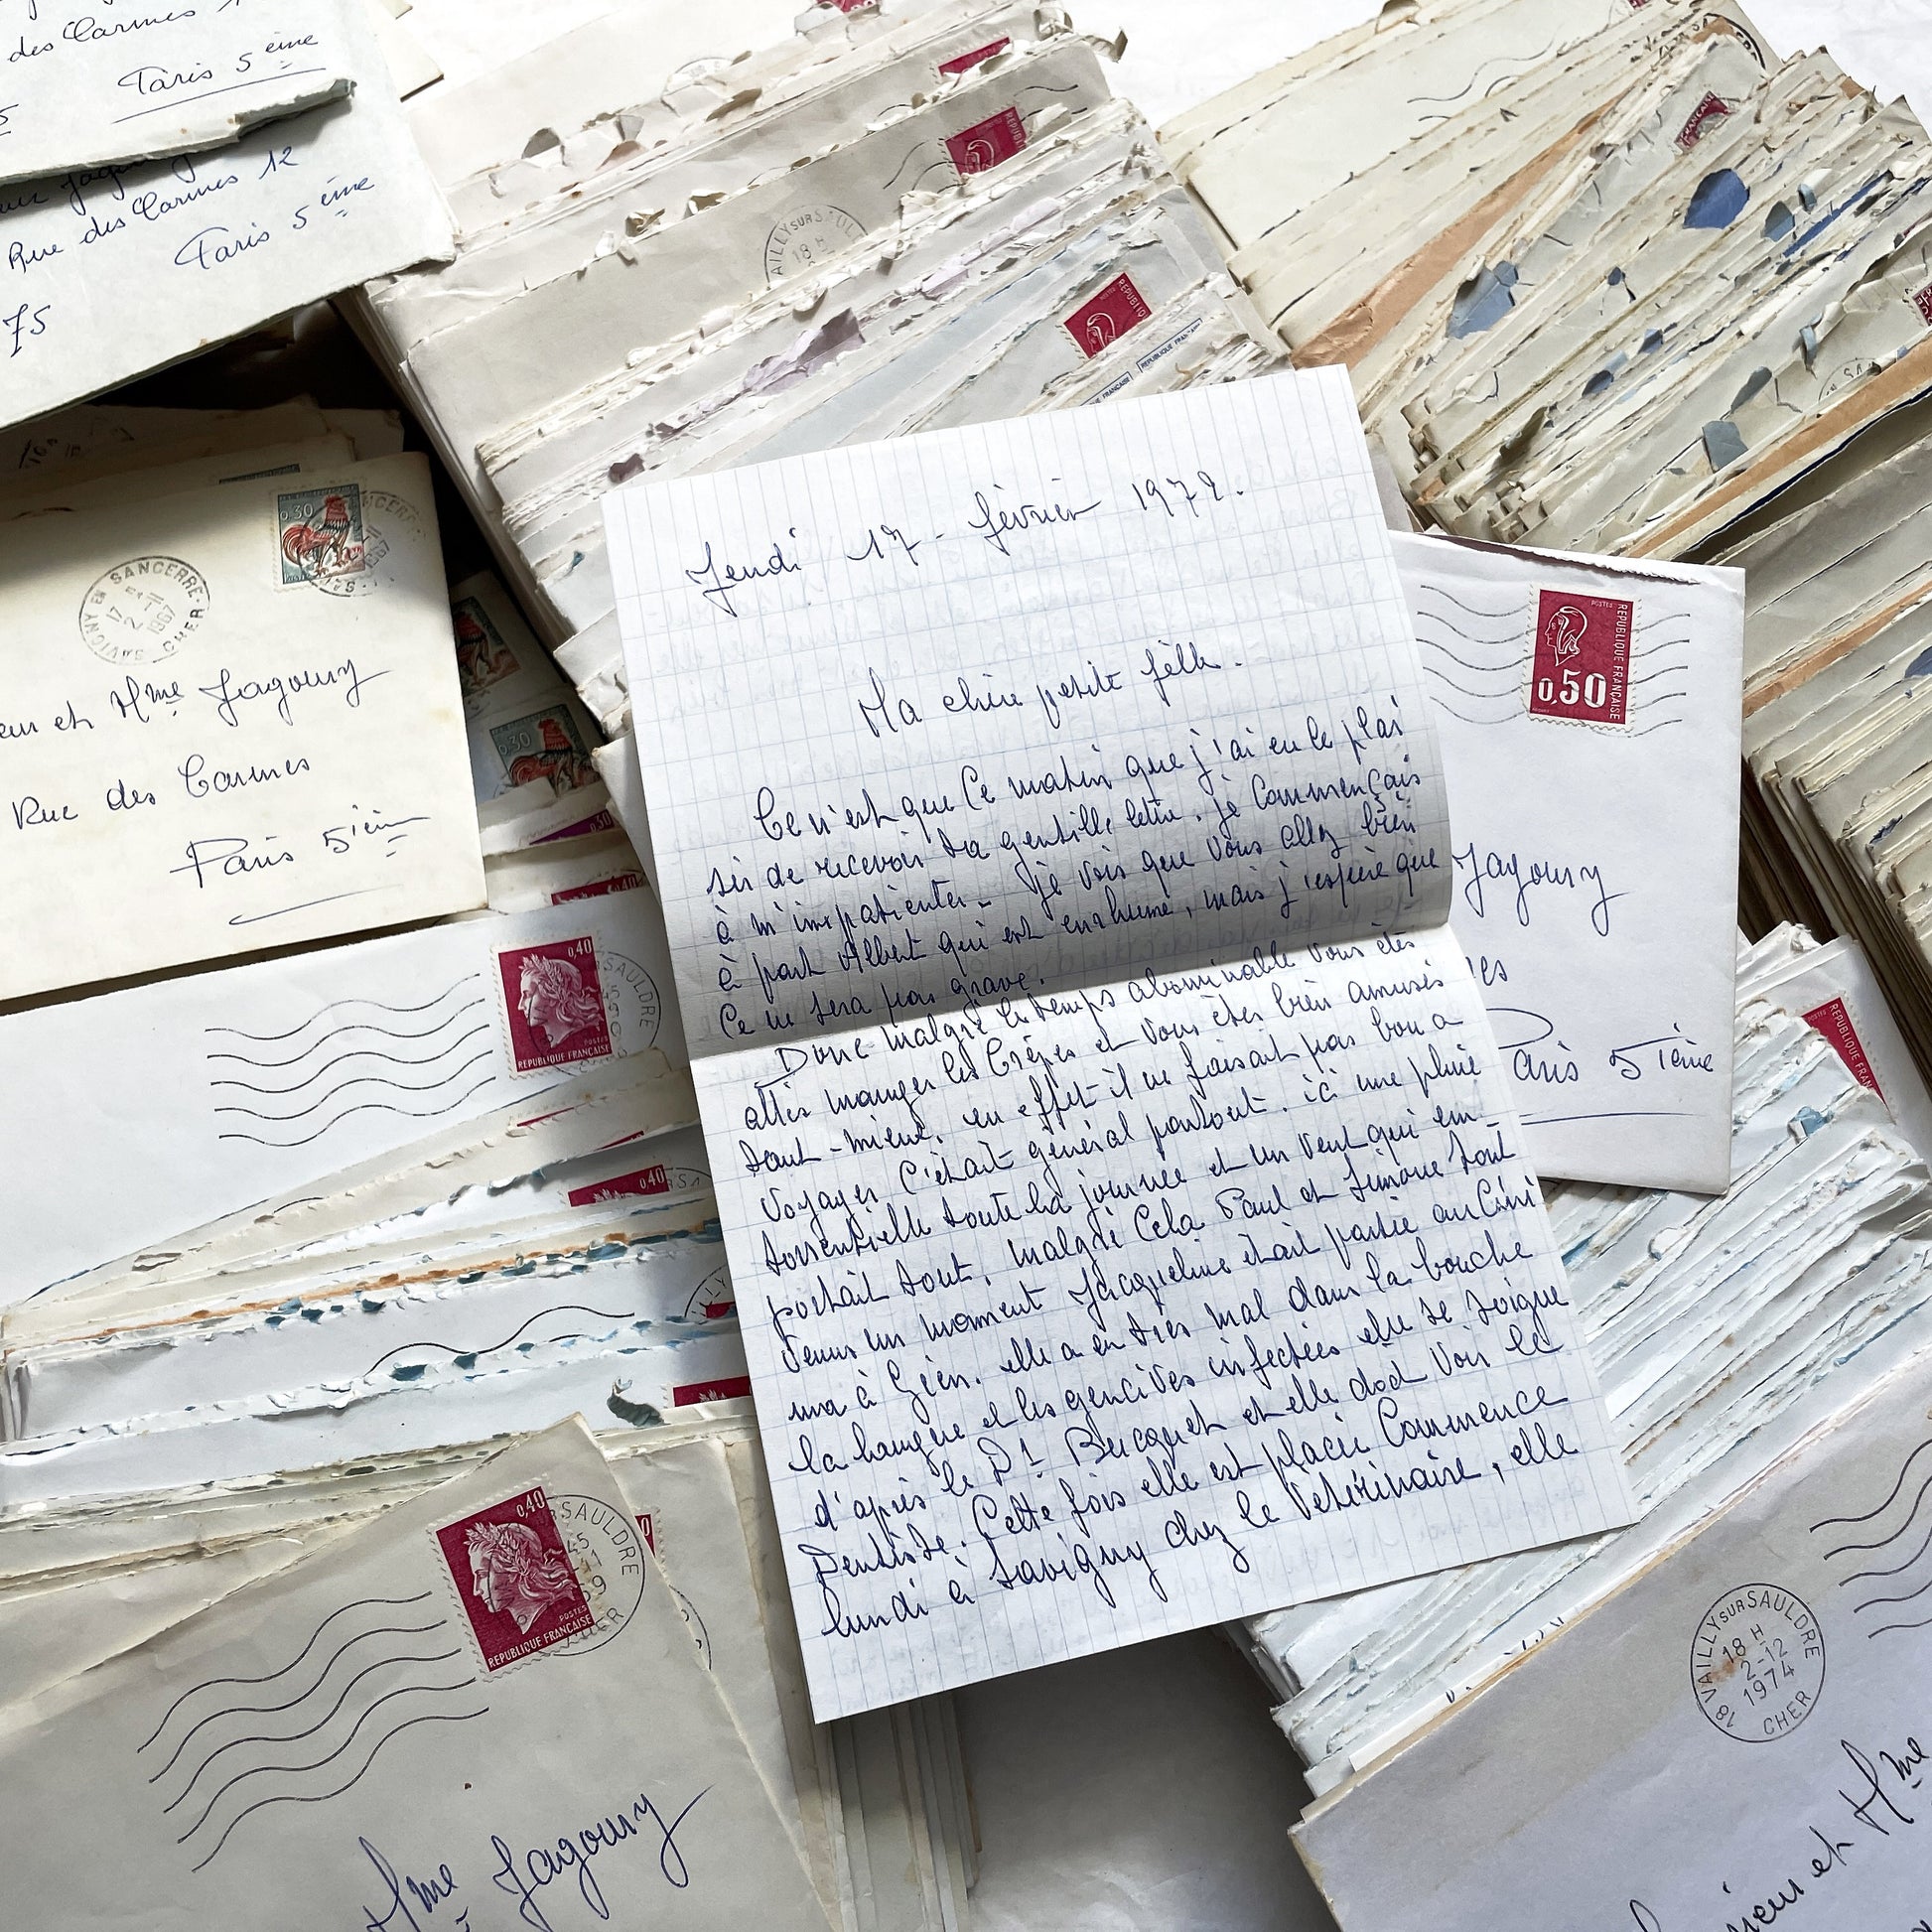 des Carmes 1
Paris 5 eme
Rue des Carmes 12
Paris 5 eme
75
REPUBLIQUE FRANÇAISE
REPUBLIQUE FRAN
0.30
SAVIGNY EN SANCERRE
17 H
2-11
1967
CHER
eur et Mme Jagoury
Rue des Carmes
Paris 5ième
0.30
0,40
REPUBLIQUE FRANÇAISE
SAULDRE
0,40
0,40
POSTES
REPUBLIQUE FRANÇAISE
SAULDRE
Mme Jagoury
VAILLY SUR SAUL
18 H
REPUBLIQ
Jeudi 17 - février 1972.
Ma chère petite fille.
Ce n'est que ce matin que j'ai eu le plai
sir de recevoir ta gentille lettre. je Commençais
à m'impatienter - je vois que Vous allez bien
à part Albert qui est enrhumé, mais j'espère que
Ce ne sera pas grave.
Donc malgré le temps abominable Vous êtes
allés manger les Crêpes et Vous êtes bien amusés
tant-mieux, en effet il ne faisait pas bon a
Voyager C'était général partout. ici une pluie
torrentielle toute la journée et un Vent qui em-
portait tout, malgré Cela Paul et Simone sont
Venus un moment Jacqueline était partie au Ciné
ma à Gien. elle a eu très mal dans la bouche
la langue et les gencives infectées elle se soigne
d'après le Dr Bucquet et elle doit Voir le
Dentiste. Cette fois elle est placée Commence
lundi à Savigny chez le Vétérinaire, elle
POSTES
REPUBLIQUE FRANÇAISE
0,50
Jagoury
es
Paris 5ième
18 VAILLY SUR SAULDRE
18 H
2-12
1974
CHER
sieur et Mme